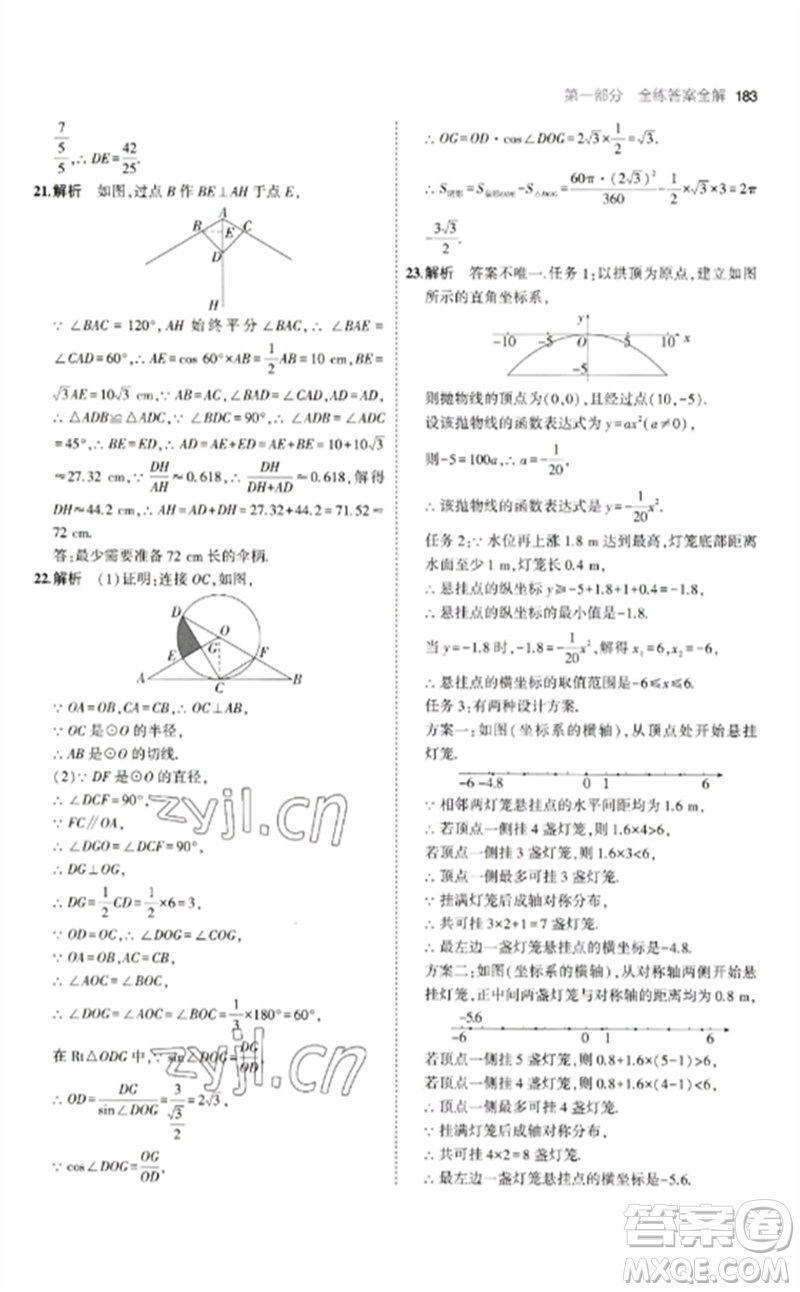 第一部分 全练答案全解 183
7/5 / 5, ∴ DE = 42/25.
21.解析 如图,过点 B 作 BE⊥AH 于点 E,
A
B E C
D
H
∵ ∠BAC = 120°, AH 始终平分∠BAC, ∴ ∠BAE =
∠CAD=60°, ∴ AE=cos 60°×AB=1/2AB=10 cm, ∴ BE=
√3AE=10√3 cm. ∵ AB=AC, ∠BAD=∠CAD, AD=AD,
∴ △ADB≌△ADC, ∵ ∠BDC = 90°, ∴ ∠ADB = ∠ADC
=45°, ∴ BE=ED, ∴ AD=AE+ED=AE+BE=10+10√3
≈27.32 cm, ∵ DH/AH≈0.618, ∴ DH/(DH+AD)≈0.618, 解得
DH≈44.2 cm, ∴ AH=AD+DH=27.32+44.2=71.52≈
72 cm.
答:最少需要准备 72 cm 长的伞柄.
22.解析 (1)证明:连接 OC,如图,
D O
G
E F
A C B
∵ OA=OB, CA=CB, ∴ OC⊥AB,
∵ OC 是⊙O 的半径,
∴ AB 是⊙O 的切线.
(2)∵ DF 是⊙O 的直径,
∴ ∠DCF=90°,
∵ FC∥OA,
∴ ∠DGO=∠DCF=90°,
∴ DG⊥OG,
∴ DG=1/2CD=1/2×6=3,
∵ OD=OC, ∴ ∠DOG=∠COG,
∵ OA=OB, AC=CB,
∴ ∠AOC=∠BOC,
∴ ∠DOG=∠AOC=∠BOC=1/3×180°=60°,
在 Rt△ODG 中, ∵ sin∠DOG=DG/OD,
∴ OD=DG/sin∠DOG=3/(√3/2)=2√3,
∵ cos∠DOG=OG/OD,
∴ OG=OD·cos∠DOG=2√3×1/2=√3.
∴ S阴影=S扇形ODE-S△DOG=60π·(2√3)²/360-1/2×√3×3=2π
-3√3/2.
23.解析 答案不唯一.任务 1:以拱顶为原点,建立如图
所示的直角坐标系,
y
-10 -5 O 5 10 x
-5
则抛物线的顶点为(0,0),且经过点(10,-5).
设该抛物线的函数表达式为 y=ax²(a≠0),
则-5=100a, ∴ a=-1/20,
∴ 该抛物线的函数表达式是 y=-1/20x².
任务 2: ∵ 水位再上涨 1.8 m 达到最高,灯笼底部距离
水面至少 1 m,灯笼长 0.4 m,
∴ 悬挂点的纵坐标 y≥-5+1.8+1+0.4=-1.8,
∴ 悬挂点的纵坐标的最小值是-1.8.
当 y=-1.8 时,-1.8=-1/20x²,解得 x₁=6,x₂=-6,
∴ 悬挂点的横坐标的取值范围是-6≤x≤6.
任务 3:有两种设计方案.
方案一:如图(坐标系的横轴),从顶点处开始悬挂
灯笼.
-6 -4.8 0 1 6
∵ 相邻两灯笼悬挂点的水平间距均为 1.6 m,
∴ 若顶点一侧挂 4 盏灯笼,则 1.6×4>6,
若顶点一侧挂 3 盏灯笼,则 1.6×3<6,
∴ 顶点一侧最多可挂 3 盏灯笼.
∵ 挂满灯笼后成轴对称分布,
∴ 共可挂 3×2+1=7 盏灯笼.
∴ 最左边一盏灯笼悬挂点的横坐标是-4.8.
方案二:如图(坐标系的横轴),从对称轴两侧开始悬
挂灯笼,正中间两盏灯笼与对称轴的距离均为 0.8 m,
-5.6
-6 0 1 6
若顶点一侧挂 5 盏灯笼,则 0.8+1.6×(5-1)>6,
若顶点一侧挂 4 盏灯笼,则 0.8+1.6×(4-1)<6,
∴ 顶点一侧最多可挂 4 盏灯笼.
∵ 挂满灯笼后成轴对称分布,
∴ 共可挂 4×2=8 盏灯笼.
∴ 最左边一盏灯笼悬挂点的横坐标是-5.6.
zyjl.cn
zyjl.cn
答案卷
MXQE.COM